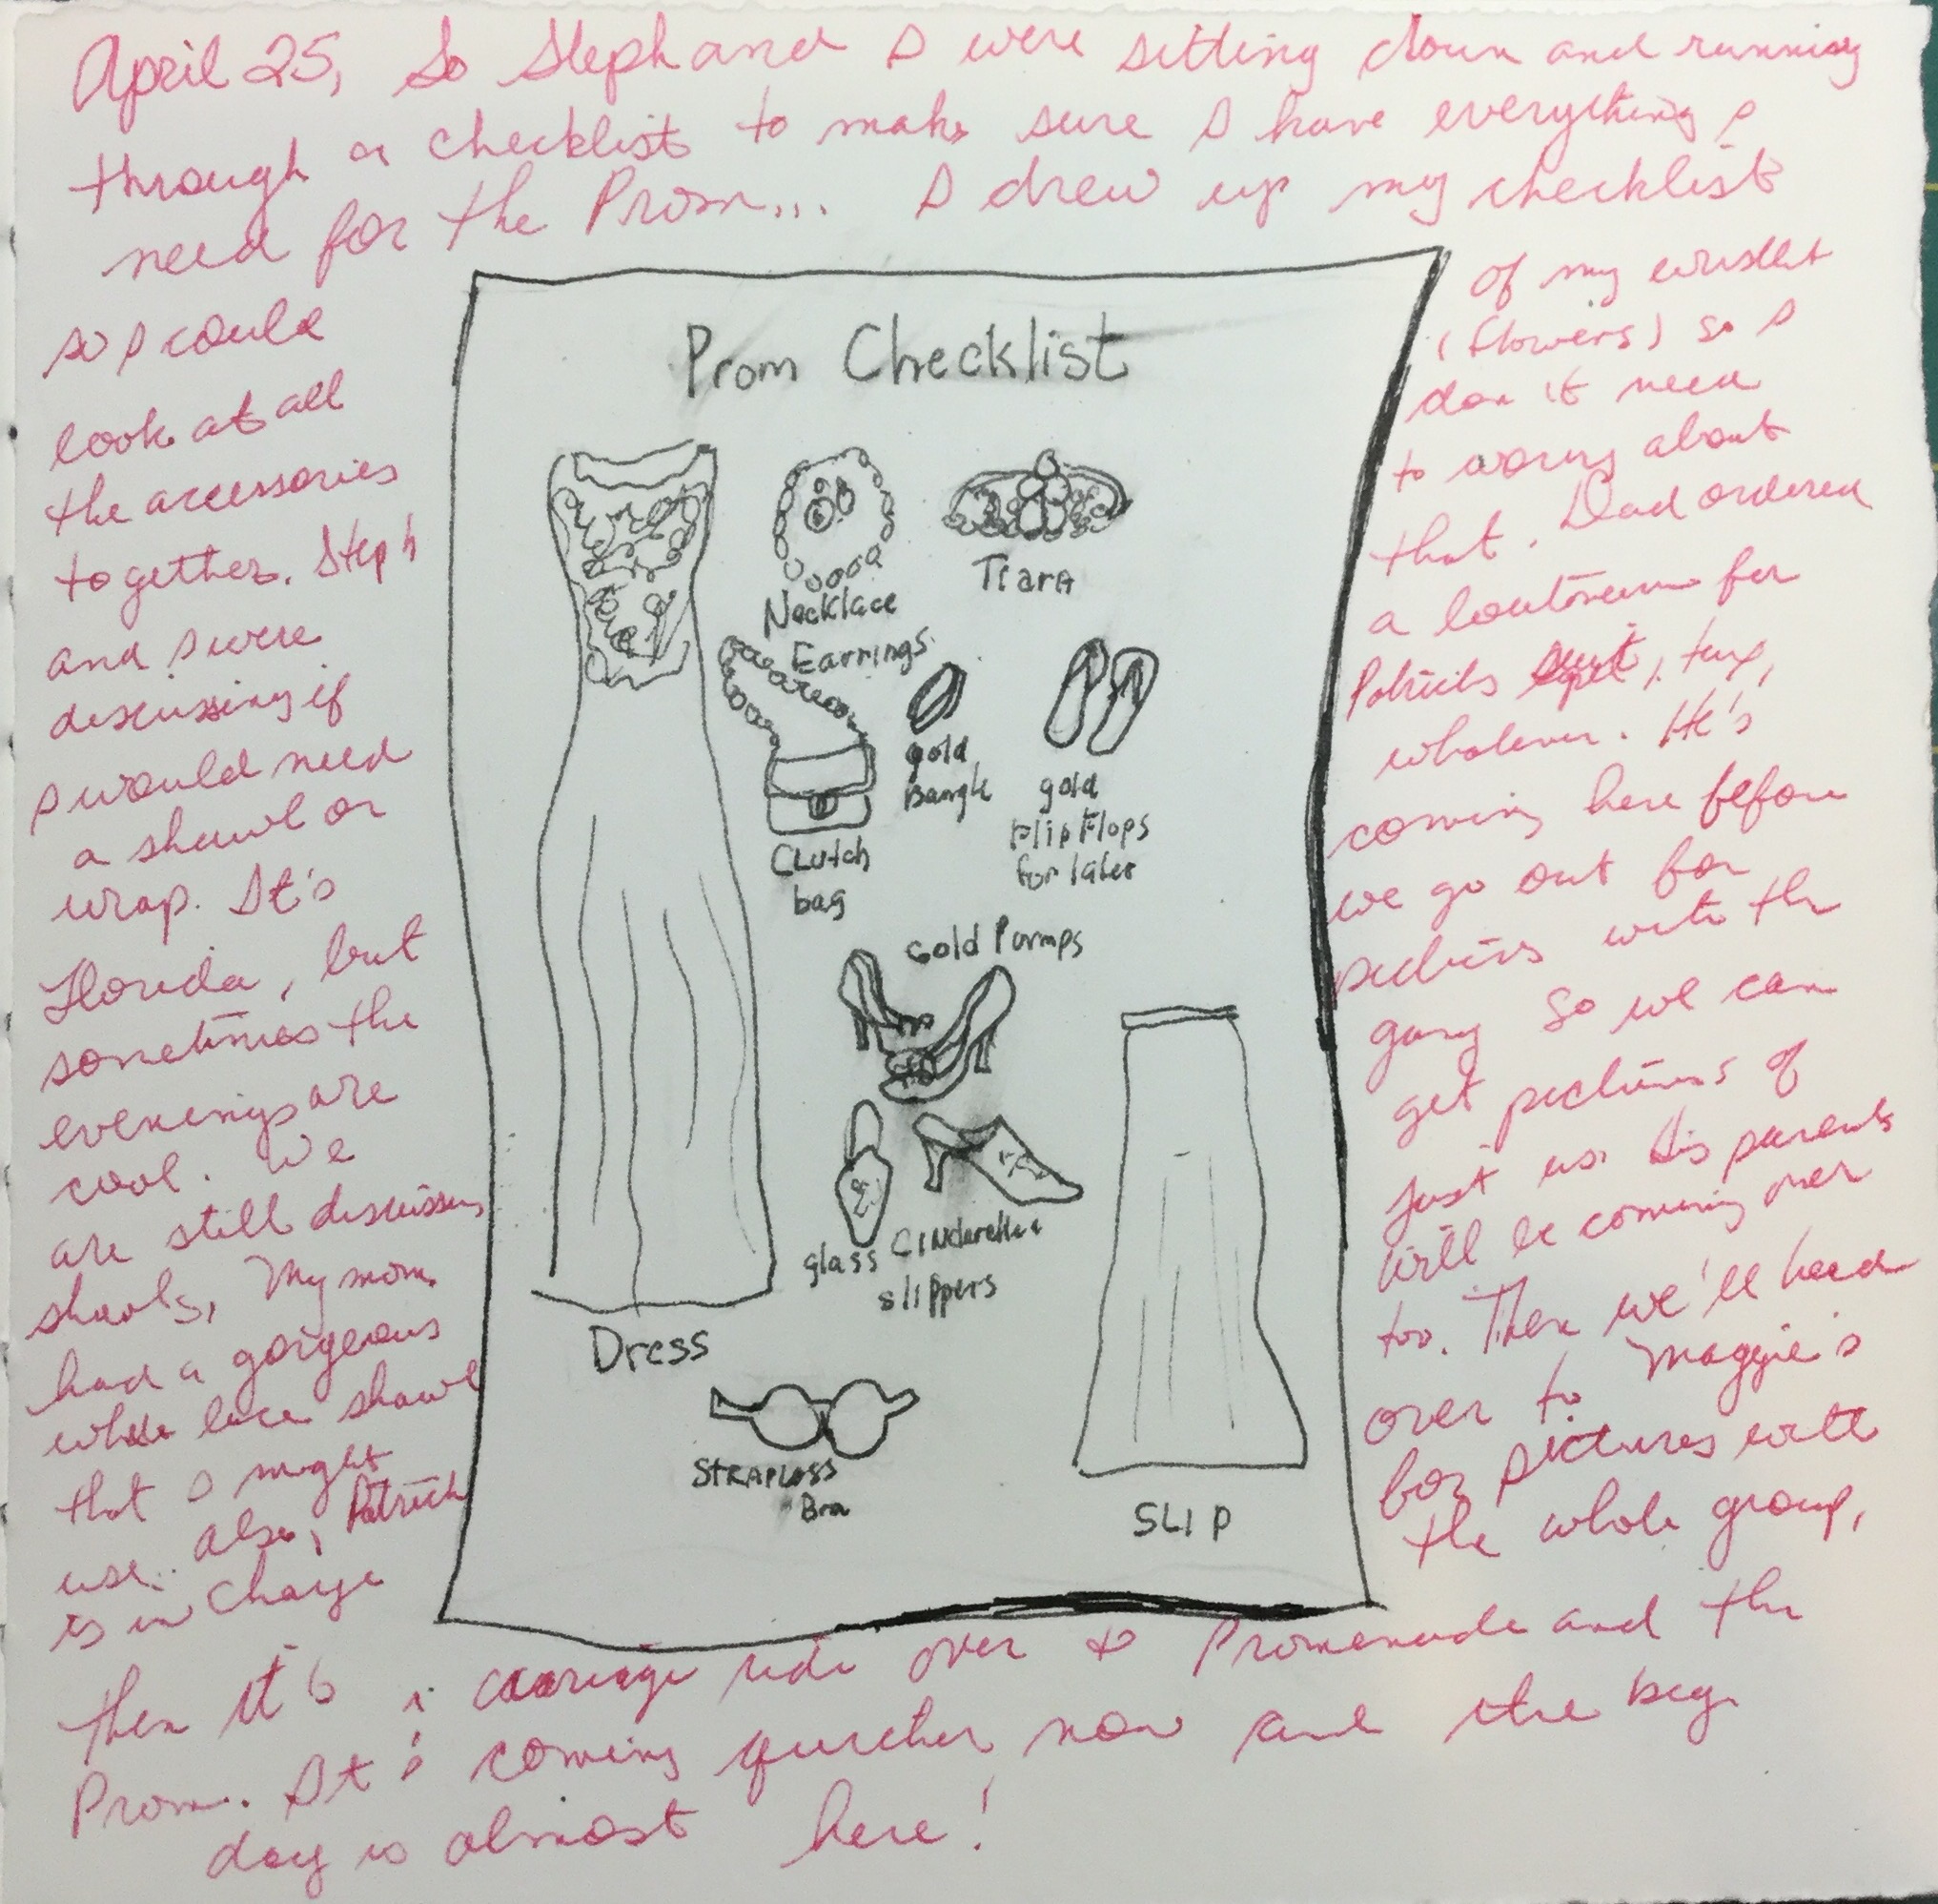 April 25, So Steph and I were sitting down and running
through a checklist to make sure I have everything I
need for the Prom... I drew up my checklist
so I could
look at all
the accessories
together. Steph
and I were
discussing if
I would need
a shawl or
wrap. It's
Florida, but
sometimes the
evenings are
cool. We
are still discussing
shawls, My mom
had a gorgeous
white lace shawl
that I might
use. also, Patrick
is in charge
Prom Checklist
Necklace
Earrings
Tiara
Clutch
bag
gold
Bangle
gold
Flip Flops
for later
Gold Pumps
glass Cinderella
slippers
Dress
STRAPLESS
Bra
SLIP
of my wristlet
(flowers) so I
don't need
to worry about
that. Dad ordered
a boutonniere for
Patricks suit, tux,
whatever. He's
coming here before
we go out for
pictures with the
gang so we can
get pictures of
just us. His parents
will be coming over
too. Then we'll head
over to Maggie's
for pictures with
the whole group,
then it's a carriage ride over to Promenade and the
Prom. It's coming quicker now and the big
day is almost here!